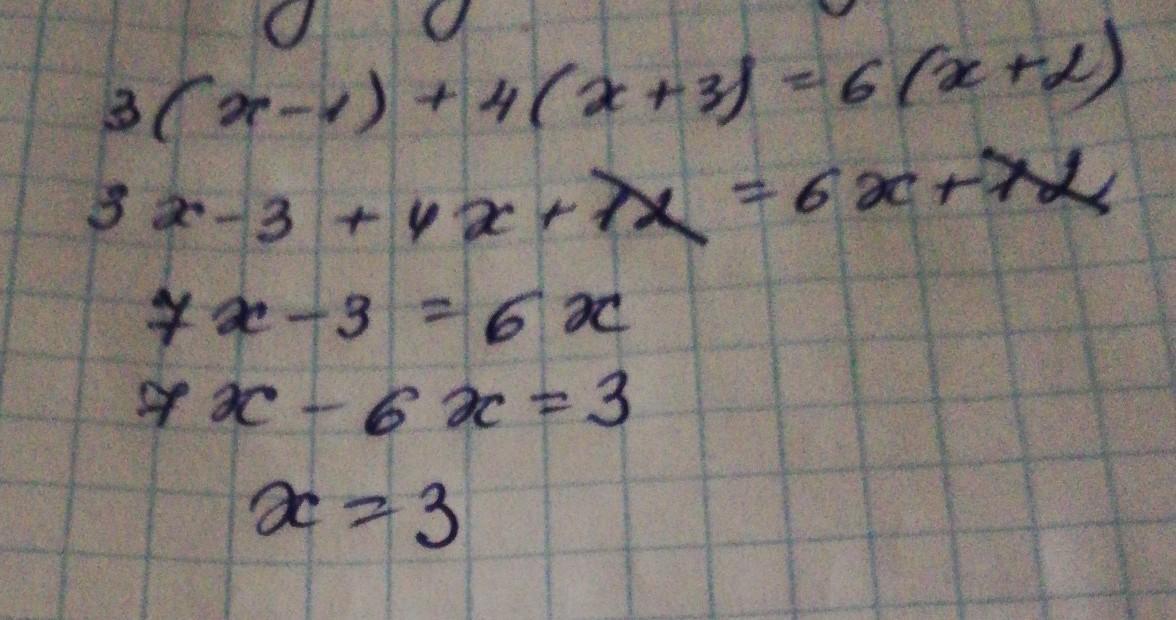 3(x-1)+4(x+3)=6(x+2)
3x-3+4x+12=6x+12
7x-3=6x
7x-6x=3
x=3